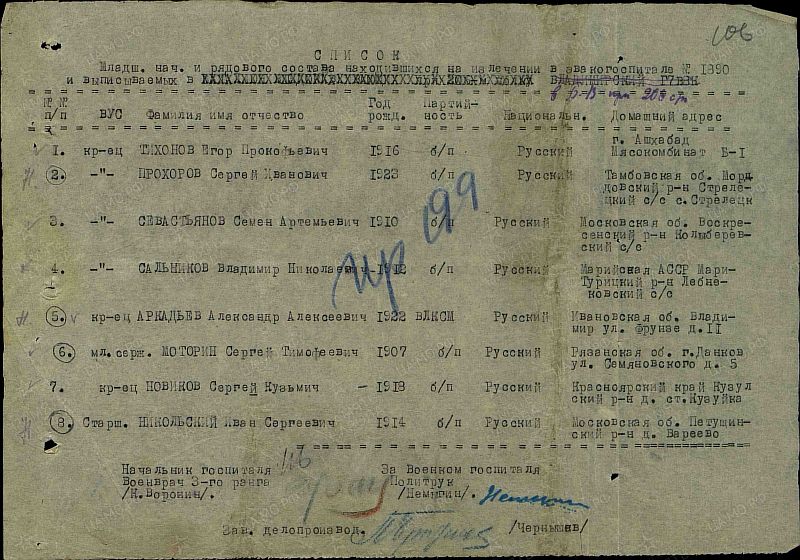 106
СПИСОК
Младш. нач. и рядового состава находившихся на излечении в эвакогоспитале № 1890
и выписываемых в
№№ п/п ВУС Фамилия имя отчество Год рожд. Партий-ность Национальн. Домашний адрес
1. кр-ец ТИХОНОВ Егор Прокофьевич 1916 б/п Русский г. Ашхабад
Мясокомбинат Б-I
2. -"- ПРОХОРОВ Сергей Иванович 1923 б/п Русский Тамбовская об. Морд
довский р-н Стреле-
цкий с/с с.Стрелецк
3. -"- СЕВАСТЬЯНОВ Семен Артемьевич 1910 б/п Русский Московская об. Воскре-
сенский р-н Колыберев-
ский с/с
4. -"- САЛЬНИКОВ Владимир Николаевич-1912 б/п Русский Марийская АССР Мари-
Турицкий р-н Лебне-
ковский с/с
5. кр-ец АРКАДЬЕВ Александр Алексеевич 1922 ВЛКСМ Русский Ивановская об. Влади-
мир ул. Фрунзе д.II
6. мл.серж. МОТОРИН Сергей Тимофеевич 1907 б/п Русский Рязанская об. г.Данков
ул. Семяновского д. 5
7. кр-ец НОВИКОВ Сергей Кузьмич - 1918 б/п Русский Красноярский край Кузул
ский р-н д. ст.Кузуйка
8. Старш. НИКОЛЬСКИЙ Иван Сергеевич 1914 б/п Русский Московская об. Петушин-
ский р-н д. Вареево
пр 199
Начальник госпиталя За Военком госпиталя
Военврач 3-го ранга Политрук
/К.Воронин/. /Немыгин/.
Зав. делопроизвод. /Чернышев/